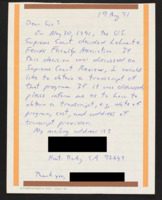 19 Aug 91
Dear Sir:
On May 20, 1991, the U.S.
Supreme Court decided
This decision was discussed on
Supreme Court Review. I would
like to obtain a transcript of
that program. If it was discussed
please inform me as to how to
obtain a transcript, e.g. date of
program, cost, and address of
transcript provider.
My mailing address is:
Hunt. Bch, CA 92649
Thank you,